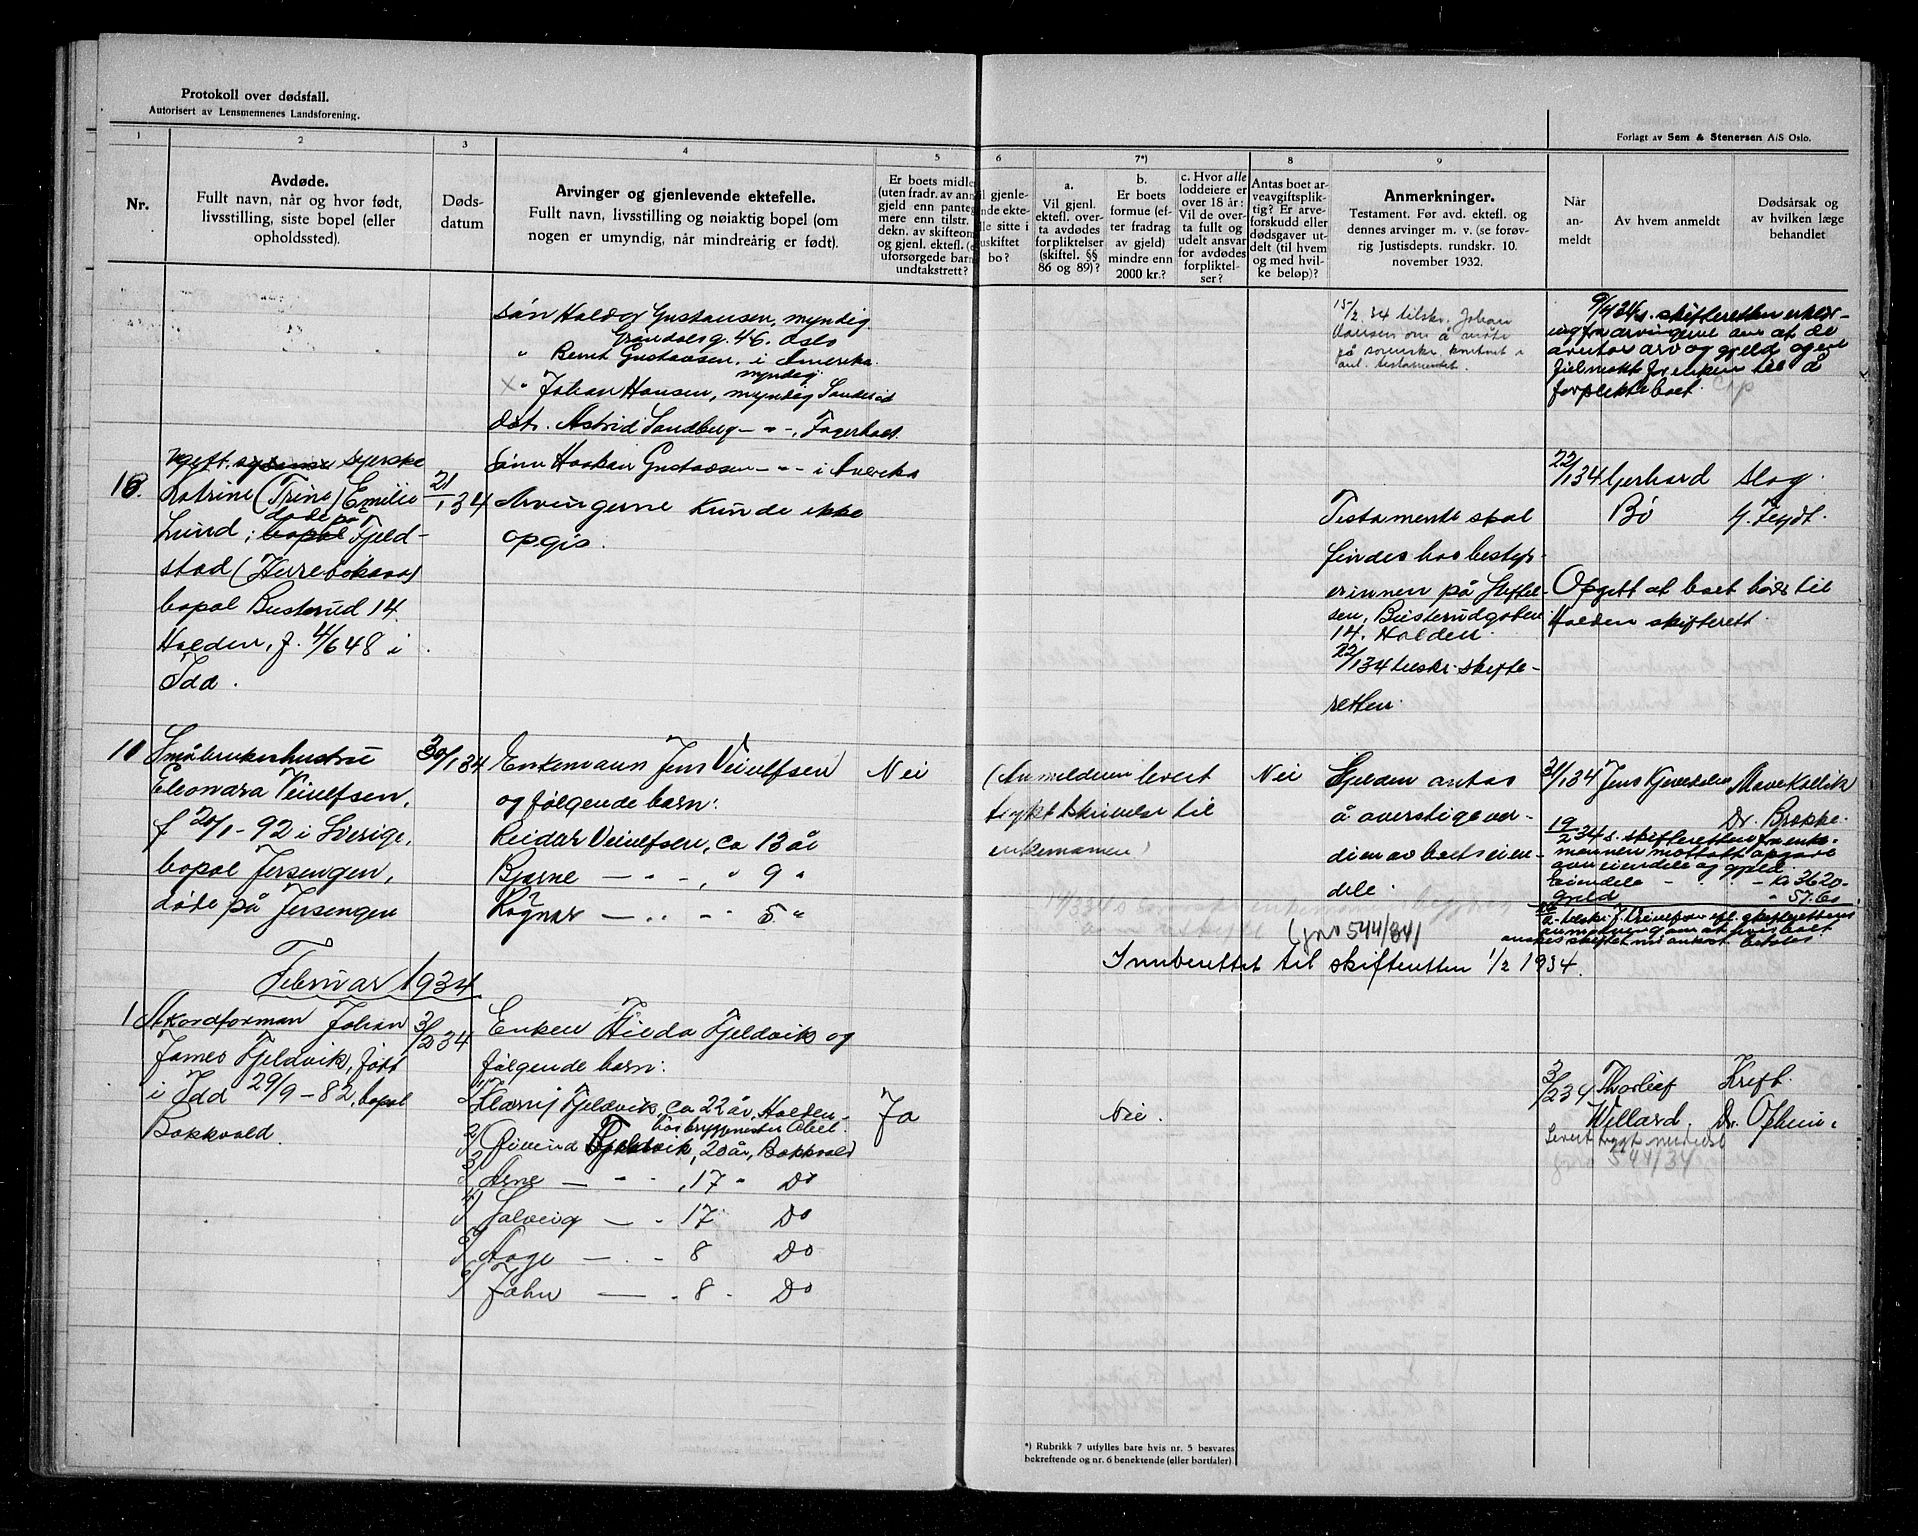 Protokoll over dødsfall.
Autorisert av Lensmennenes Landsforening.
Forlagt av Sem & Stenersen A/S Oslo.
1
2
3
4
5
6
7*)
8
9
Nr.
Avdøde.
Fullt navn, når og hvor født,
livsstilling, siste bopel (eller
opholdssted).
Døds-
datum
Arvinger og gjenlevende ektefelle.
Fullt navn, livsstilling og nøiaktig bopel (om
nogen er umyndig, når mindreårig er født).
Er boets midle
(uten fradr. av ann
gjeld enn panteg
mere enn tilstr. t
dekn. av skifteom
og gjenl. ektef. (o
uforsørgede barn
undtakstrett?
il gjenle-
nde ekte-
lle sitte i
uskiftet
bo?
a.
Vil gjenl.
ektefl. over-
ta avdødes
forpliktelser
(skiftel. §§
86 og 89)?
b.
Er boets
formue (ef-
ter fradrag
av gjeld)
mindre enn
2000 kr.?
c. Hvor alle
loddeiere er
over 18 år:
Vil de over-
ta fullt og
udelt ansvar
for avdødes
forpliktel-
ser?
Antas boet ar-
veavgiftsplik-
tig? Er arve-
forskudd eller
dødsgaver ut-
delt (til hvem
og med hvil-
ke beløp)?
Anmerkninger.
Testament. Før avd. ektefl. og
dennes arvinger m. v. (se forøv-
rig Justisdepts. rundskr. 10.
november 1932.
Når
an-
meldt
Av hvem anmeldt
Dødsårsak og
av hvilken læge
behandlet
Søn Haldor Gustavsen, myndig
g. 46. Oslo
" Bernt Gustavsen, i Amerika.
myndig
X " Johan Hansen, myndig
dat. Astrid Sandberg - " -
Sønn Haakan Gustavsen - " - i Amerika
15/2. 34 tilskr. Johan
Hansen om å møte
på
anl. testamentet.
9/4 34 s. skifteretten erklær-
ing fra arvingene om at de
overtar arv og gjeld og en
fuldmakt for enken til å
forplikte boet
16.
Ugift syerske
Katrine (Trina) Emilie
Lund; døde på
bopæl Fjeld-
stad (Herrebøkasa)
bopæl Busterud 14.
Halden, f. 4/6 48 i
Idd.
21/1 34
Arvingerne kunde ikke
opgis.
Testamente skal
findes hos bestyr-
erinnen på Stiftel-
sen, Busterudgaten
14. Halden.
22/1 34 tilskr. skifte-
retten.
22/1 34 Gerhard
Bø
Slag.
Opgitt at boet hører til
Halden skifterett.
10
Småbrukerhustru
Eleonora Veiulfsen,
f 20/1 - 92 i Sverige,
bopæl Jersengen,
døde på Jersengen
30/1 34
Enkemann Jens Veiulfsen
og følgende barn:
Reidar Veiulfsen, ca 13 år
Bjarne - " - , " 9 "
Ragnar - " - " 5 "
Nei
(Anmelderen levert
trykt skrivelse til
enkemannen)
Nei
Gjelden antas
å overstige ver-
dien av boets eien-
dele.
(jnr 544/34)
31/1 34
Mavekatarr
Dr. Brække.
19/2 34 s. skifteretten fra enke-
mannen mottatt opgave
over eiendele og gjeld
Eiendele - - - Kr 3620-
Gjeld " 57.60
Innberettet til skifteretten 1/2 1934.
Februar 1934
1
Akordforman Johan
James Fjeldvik, født
i Idd 29/9 - 82, bopæl
Bakkvold.
3/2 34
Enken Hilda Fjeldvik og
følgende barn:
1) Fjeldvik, ca 22 år, Halden
hos bryggmester Abel.
2) Øivind Fjeldvik, 20 år, Bakkvold
3) Arne - " - , 17 " Do
4) Solveig - " 17 Do
5) Aage - . - 8 Do
6) John - " 8 - Do
Ja
Nei.
3/2 34 Thorleif
Willard.
Kreft.
Levert trykt
jnr 544/34
*) Rubrikk 7 utfylles bare hvis nr. 5 besvares
bekreftende og nr. 6 benektende (eller bortfaler).